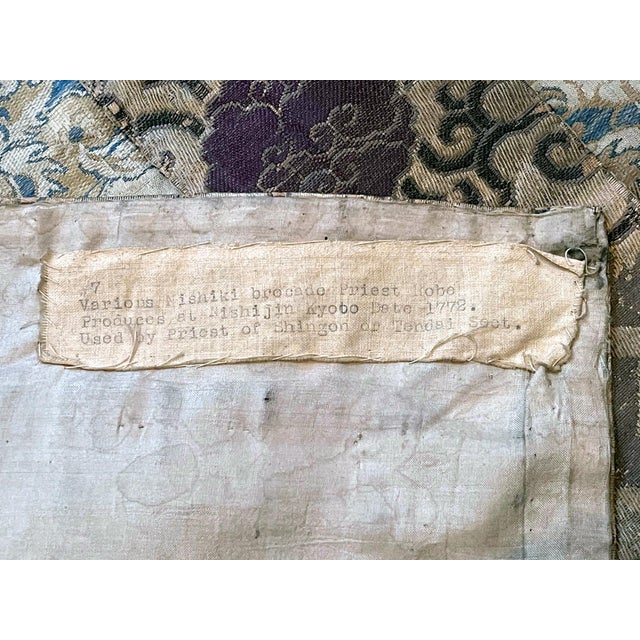 .7
Various Nishiki brocade Priest Robe
Produces at Nishijin Kyoto Date 1772.
Used by Priest of Shingon or Tendai Sect.